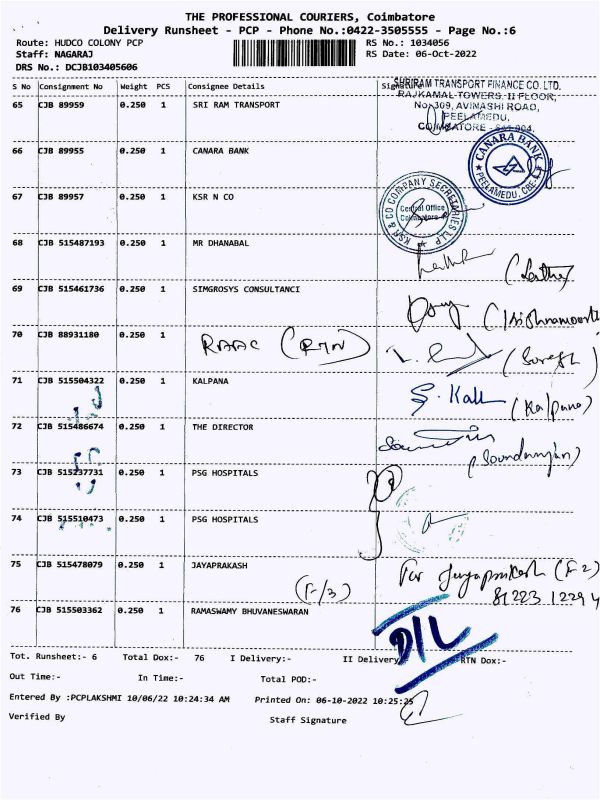 THE PROFESSIONAL COURIERS, Coimbatore
Delivery Runsheet - PCP - Phone No.:0422-3505555 - Page No.:6
Route: HUDCO COLONY PCP RS No.: 1034056
Staff: NAGARAJ RS Date: 06-Oct-2022
DRS No.: DCJB103405606
S No Consignment No Weight PCS Consignee Details Signature
SHRIRAM TRANSPORT FINANCE CO. LTD.
RAJKAMAL TOWERS-II FLOOR,
No:309, AVINASHI ROAD,
PEELAMEDU,
COIMBATORE - 641 004.
65 CJB 89959 0.250 1 SRI RAM TRANSPORT
66 CJB 89955 0.250 1 CANARA BANK
CANARA BANK
PEELAMEDU, CBE
67 CJB 89957 0.250 1 KSR N CO
KSR & CO COMPANY SECRETARIES LLP
Central Office
Coimbatore
68 CJB 515487193 0.250 1 MR DHANABAL
(Latha)
69 CJB 515461736 0.250 1 SIMGROSYS CONSULTANCI
70 CJB 88931180 0.250 1
RAAC (RTN) (Suresh)
71 CJB 515504322 0.250 1 KALPANA
S. Kall (Kalpana)
72 CJB 515486674 0.250 1 THE DIRECTOR
73 CJB 515237731 0.250 1 PSG HOSPITALS
74 CJB 515510473 0.250 1 PSG HOSPITALS
75 CJB 515478079 0.250 1 JAYAPRAKASH
For Jayaprakash (F-2)
(F-/3) 81223 12294
76 CJB 515503362 0.250 1 RAMASWAMY BHUVANESWARAN
D/L
Tot. Runsheet:- 6 Total Dox:- 76 I Delivery:- II Delivery RTN Dox:-
Out Time:- In Time:- Total POD:-
Entered By :PCPLAKSHMI 10/06/22 10:24:34 AM Printed On: 06-10-2022 10:25:25
Verified By Staff Signature